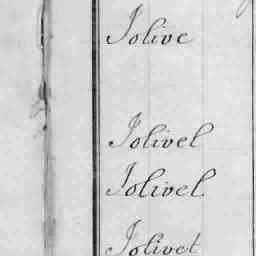 Jolive
Jolivel
Jolivel
Jolivet